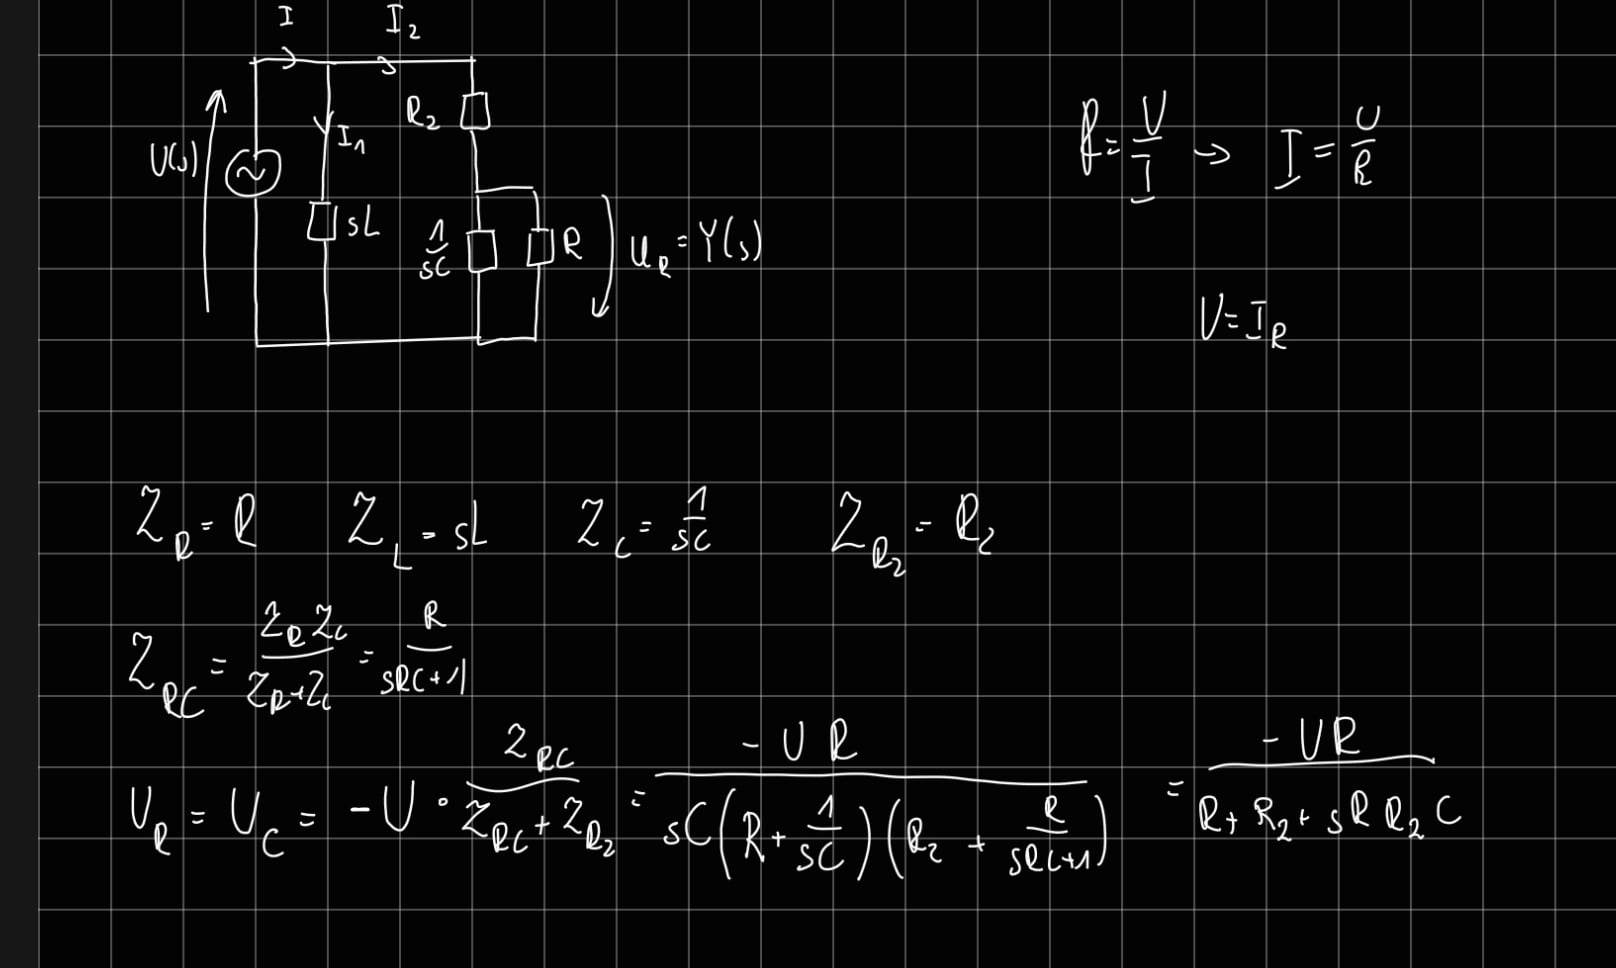 I I₂
R₂
I₁
U(s) ~
sL 1/sC R u_R = Y(s)
R = U/I → I = U/R
U = I_R
Z_R = R Z_L = sL Z_C = 1/sC Z_R₂ = R₂
Z_RC = Z_R Z_C / Z_R + Z_C = R / sRC+1
U_R = U_C = -U · Z_RC / Z_RC + Z_R₂ = -U R / sC(R + 1/sC)(R₂ + R/sRC+1) = -UR / R + R₂ + sR R₂ C